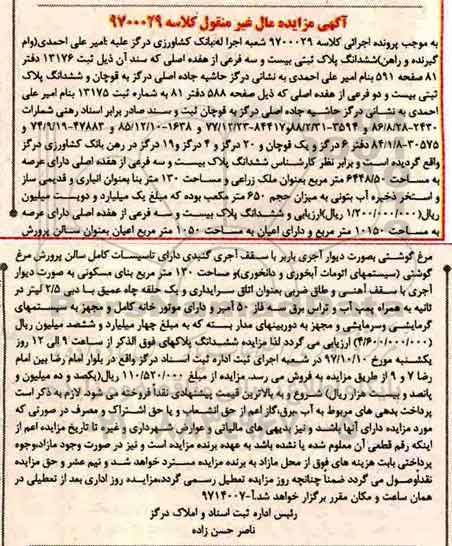 آگهی مزایده مال غیر منقول کلاسه ۹۷۰۰۰۲۹
به موجب پرونده اجرائی کلاسه ۹۷۰۰۰۲۹ شعبه اجرا له:بانک کشاورزی درگز علیه :امیر علی احمدی(وام
گیرنده و راهن)ششدانگ پلاک ثبتی بیست و سه فرعی از هفده اصلی که سند آن ذیل ثبت ۱۳۱۷۶ دفتر
۸۱ صفحه ۵۹۱ بنام امیر علی احمدی به نشانی درگز حاشیه جاده اصلی درگز به قوچان و ششدانگ پلاک
ثبتی بیست و دو فرعی از هفده اصلی که ذیل صفحه ۵۸۸ دفتر ۸۱ به شماره ثبت ۱۳۱۷۵ بنام امیر علی
احمدی به نشانی درگز حاشیه جاده اصلی درگز به قوچان ثبت و سند صادر برابر اسناد رهنی شمارات
۲۴۳۰-۸۶/۸/۲۸ و ۳۵۱۴-۸۸/۲/۳۱و۸۴۴۱۷-۷۷/۱۲/۲۳ و ۱۶۳۸-۸۵/۱۲/۱۰ و ۴۷۸۸۳-۷۴/۹/۱۹ و
۳۰۵۷۵-۸۴/۱/۸ دفتر ۶ درگز و یک قوچان و ۲۰ درگز و ۴ درگز و۱۹ درگز در رهن بانک کشاورزی درگز
واقع گردیده است و برابر نظر کارشناس ششدانگ پلاک بیست و سه فرعی از هفده اصلی دارای عرصه
به مساحت ۶۴۴۸/۵۰ متر مربع بعنوان ملک زراعی و مساحت ۱۳۰ متر بنا بعنوان انباری و قدیمی ساز
و استخر ذخیره آب بتونی به میزان حجم ۶۵۰ متر مکعب بوده که مبلغ یک میلیارد و دویست میلیون
ریال(۱/۲۰۰/۰۰۰/۰۰۰ ریال)ارزیابی و ششدانگ پلاک بیست و سه فرعی از هفده اصلی دارای عرصه
به مساحت ۱۰۱۵۰ متر مربع و دارای اعیان به مساحت ۱۰۵۰ متر مربع اعیان بعنوان سالن پرورش
مرغ گوشتی بصورت دیوار آجری باربر با سقف آجری گنبدی دارای تاسیسات کامل سالن پرورش مرغ
گوشتی (سیستمهای اتومات آبخوری و دانخوری)و مساحت ۱۳۰ متر مربع بنای مسکونی به صورت دیوار
آجری با سقف آهنی و طاق ضربی بعنوان اتاق سرایداری و یک حلقه چاه عمیق با دبی ۲/۵ لیتر در
ثانیه به همراه پمپ آب و تراس برق سه فاز ۵۰ آمپر و دارای موتور خانه کامل و مجهز به سیستمهای
گرمایشی وسرمایشی و مجهز به دوربینهای مدار بسته که به مبلغ چهار میلیارد و ششصد میلیون ریال
(۴/۶۰۰/۰۰۰/۰۰۰) ارزیابی می گردد لذا مزایده ششدانگ پلاکهای فوق الذکر از ساعت ۹ الی ۱۲ روز
یکشنبه مورخ ۹۷/۱۰/۱۰ در شعبه اجرای ثبت اداره ثبت اسناد درگز واقع در بلوار امام رضا بین امام
رضا ۷ و ۹ از طریق مزایده به فروش می رسد. مزایده از مبلغ ۱۱۰/۵۲۰/۰۰۰ ریال(یکصد و ده میلیون و
پانصد و بیست هزار ریال) شروع و به بالاترین قیمت پیشنهادی نقدا فروخته می شود. لازم به ذکر است
پرداخت بدهی های مربوط به آب ،برق،گاز اعم از حق انشعاب و یا حق اشتراک و مصرف در صورتی که
مورد مزایده دارای آنها باشد و نیز بدیهی های مالیاتی و عوارض شهرداری و غیره تا تاریخ مزایده اعم از
اینکه رقم قطعی آن معلوم شده یا نشده باشد به عهده برنده مزایده است و نیز در صورت وجود مازاد،وجوه
پرداختی بابت هزینه های فوق از محل مازاد به برنده مزایده مسترد خواهد شد و نیم عشر و حق مزایده
نقداًوصول می گردد ضمناً چنانچه روز مزایده تعطیل رسمی گردد،مزایده روز اداری بعد از تعطیلی در
همان ساعت و مکان مقرر برگزار خواهد شد.آ-۹۷۱۴۰۰۷
رئیس اداره ثبت اسناد و املاک درگز
ناصر حسن زاده